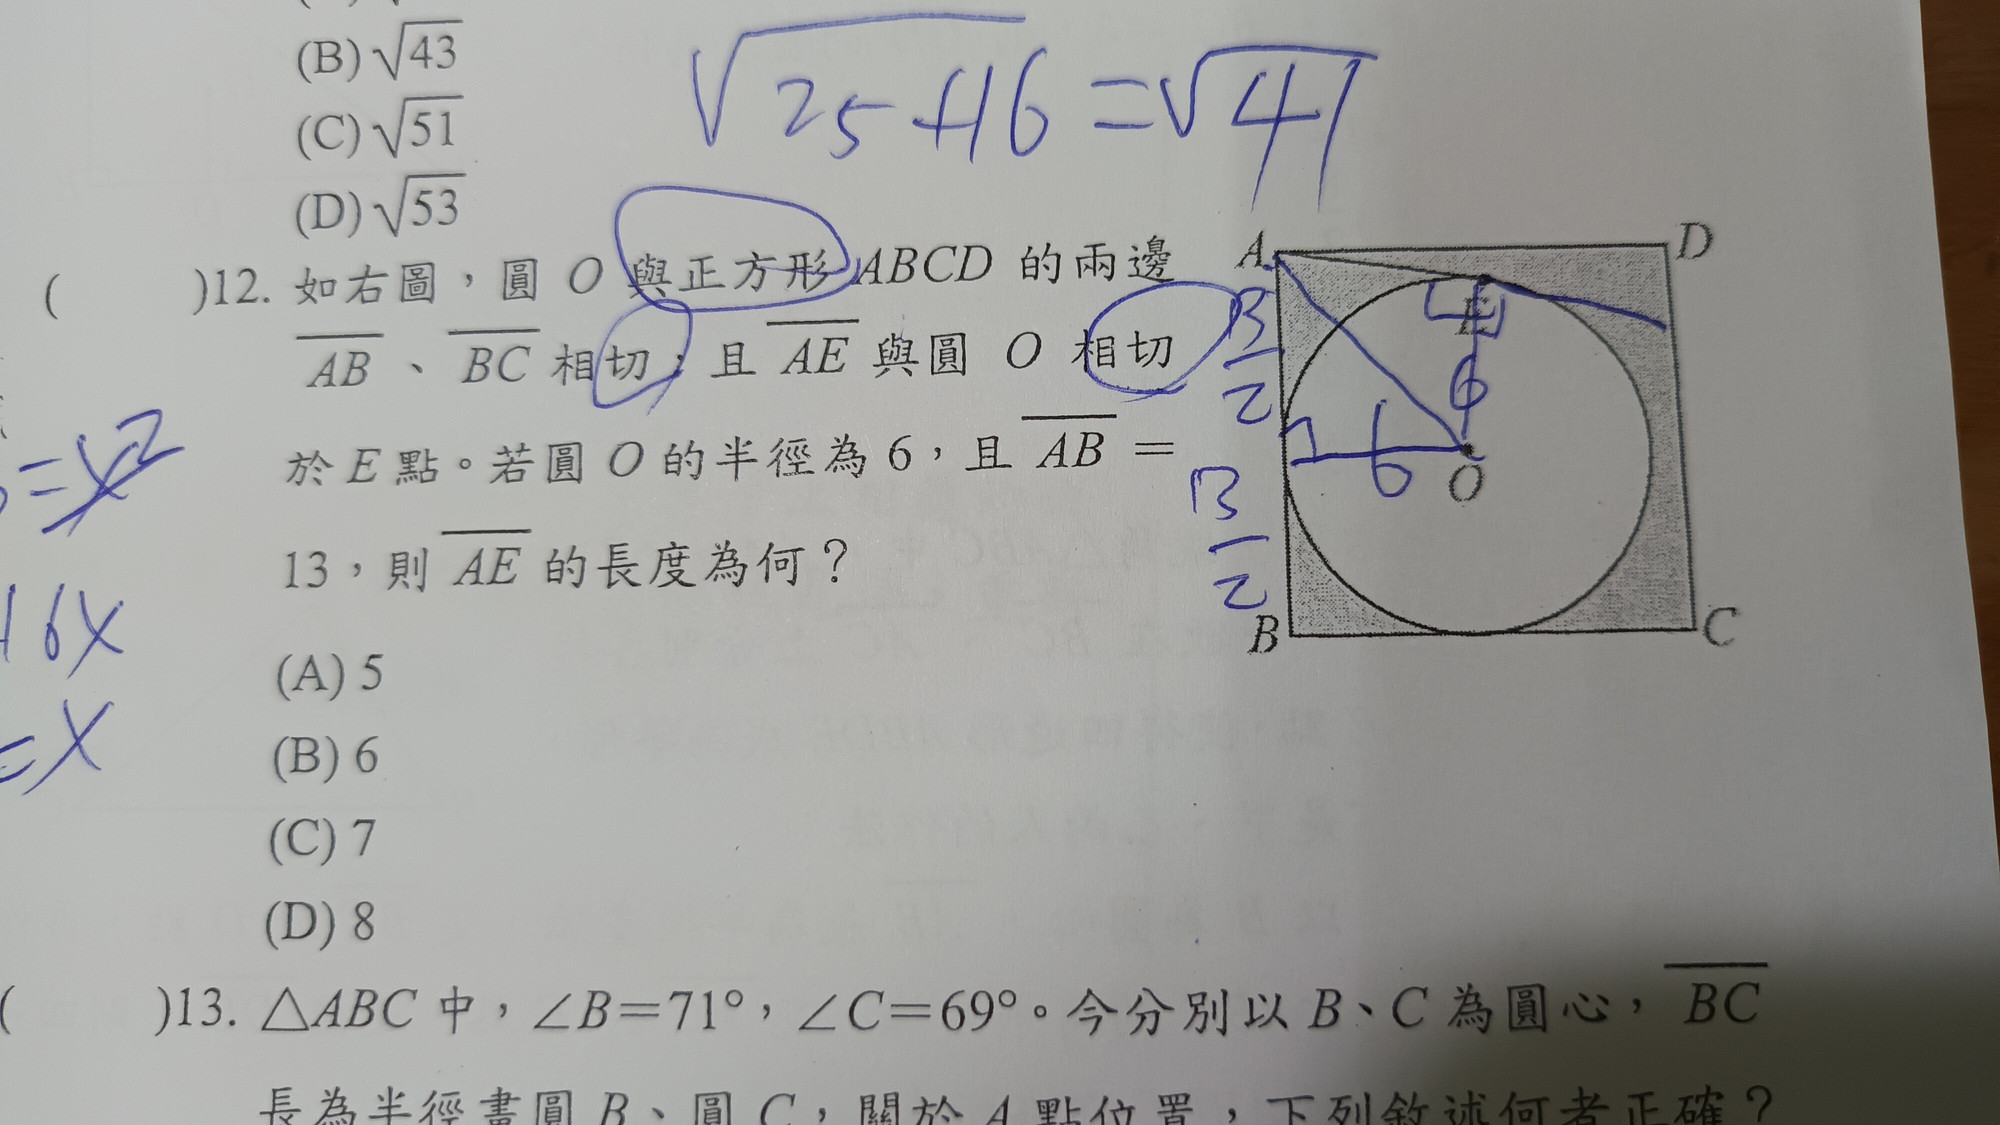 (B) √43
(C) √51
(D) √53
√25+16 = √41
( )12. 如右圖，圓 O 與正方形 ABCD 的兩邊
AB、BC 相切，且 AE 與圓 O 相切
於 E 點。若圓 O 的半徑為 6，且 AB =
13，則 AE 的長度為何？
(A) 5
(B) 6
(C) 7
(D) 8
A
D
E
O
B
C
13
2
13
2
6
6
= x²
16x
= x
( )13. △ABC 中，∠B=71°，∠C=69°。今分別以 B、C 為圓心，BC
長為半徑畫圓 B、圓 C，關於 A 點位置，下列敘述何者正確？